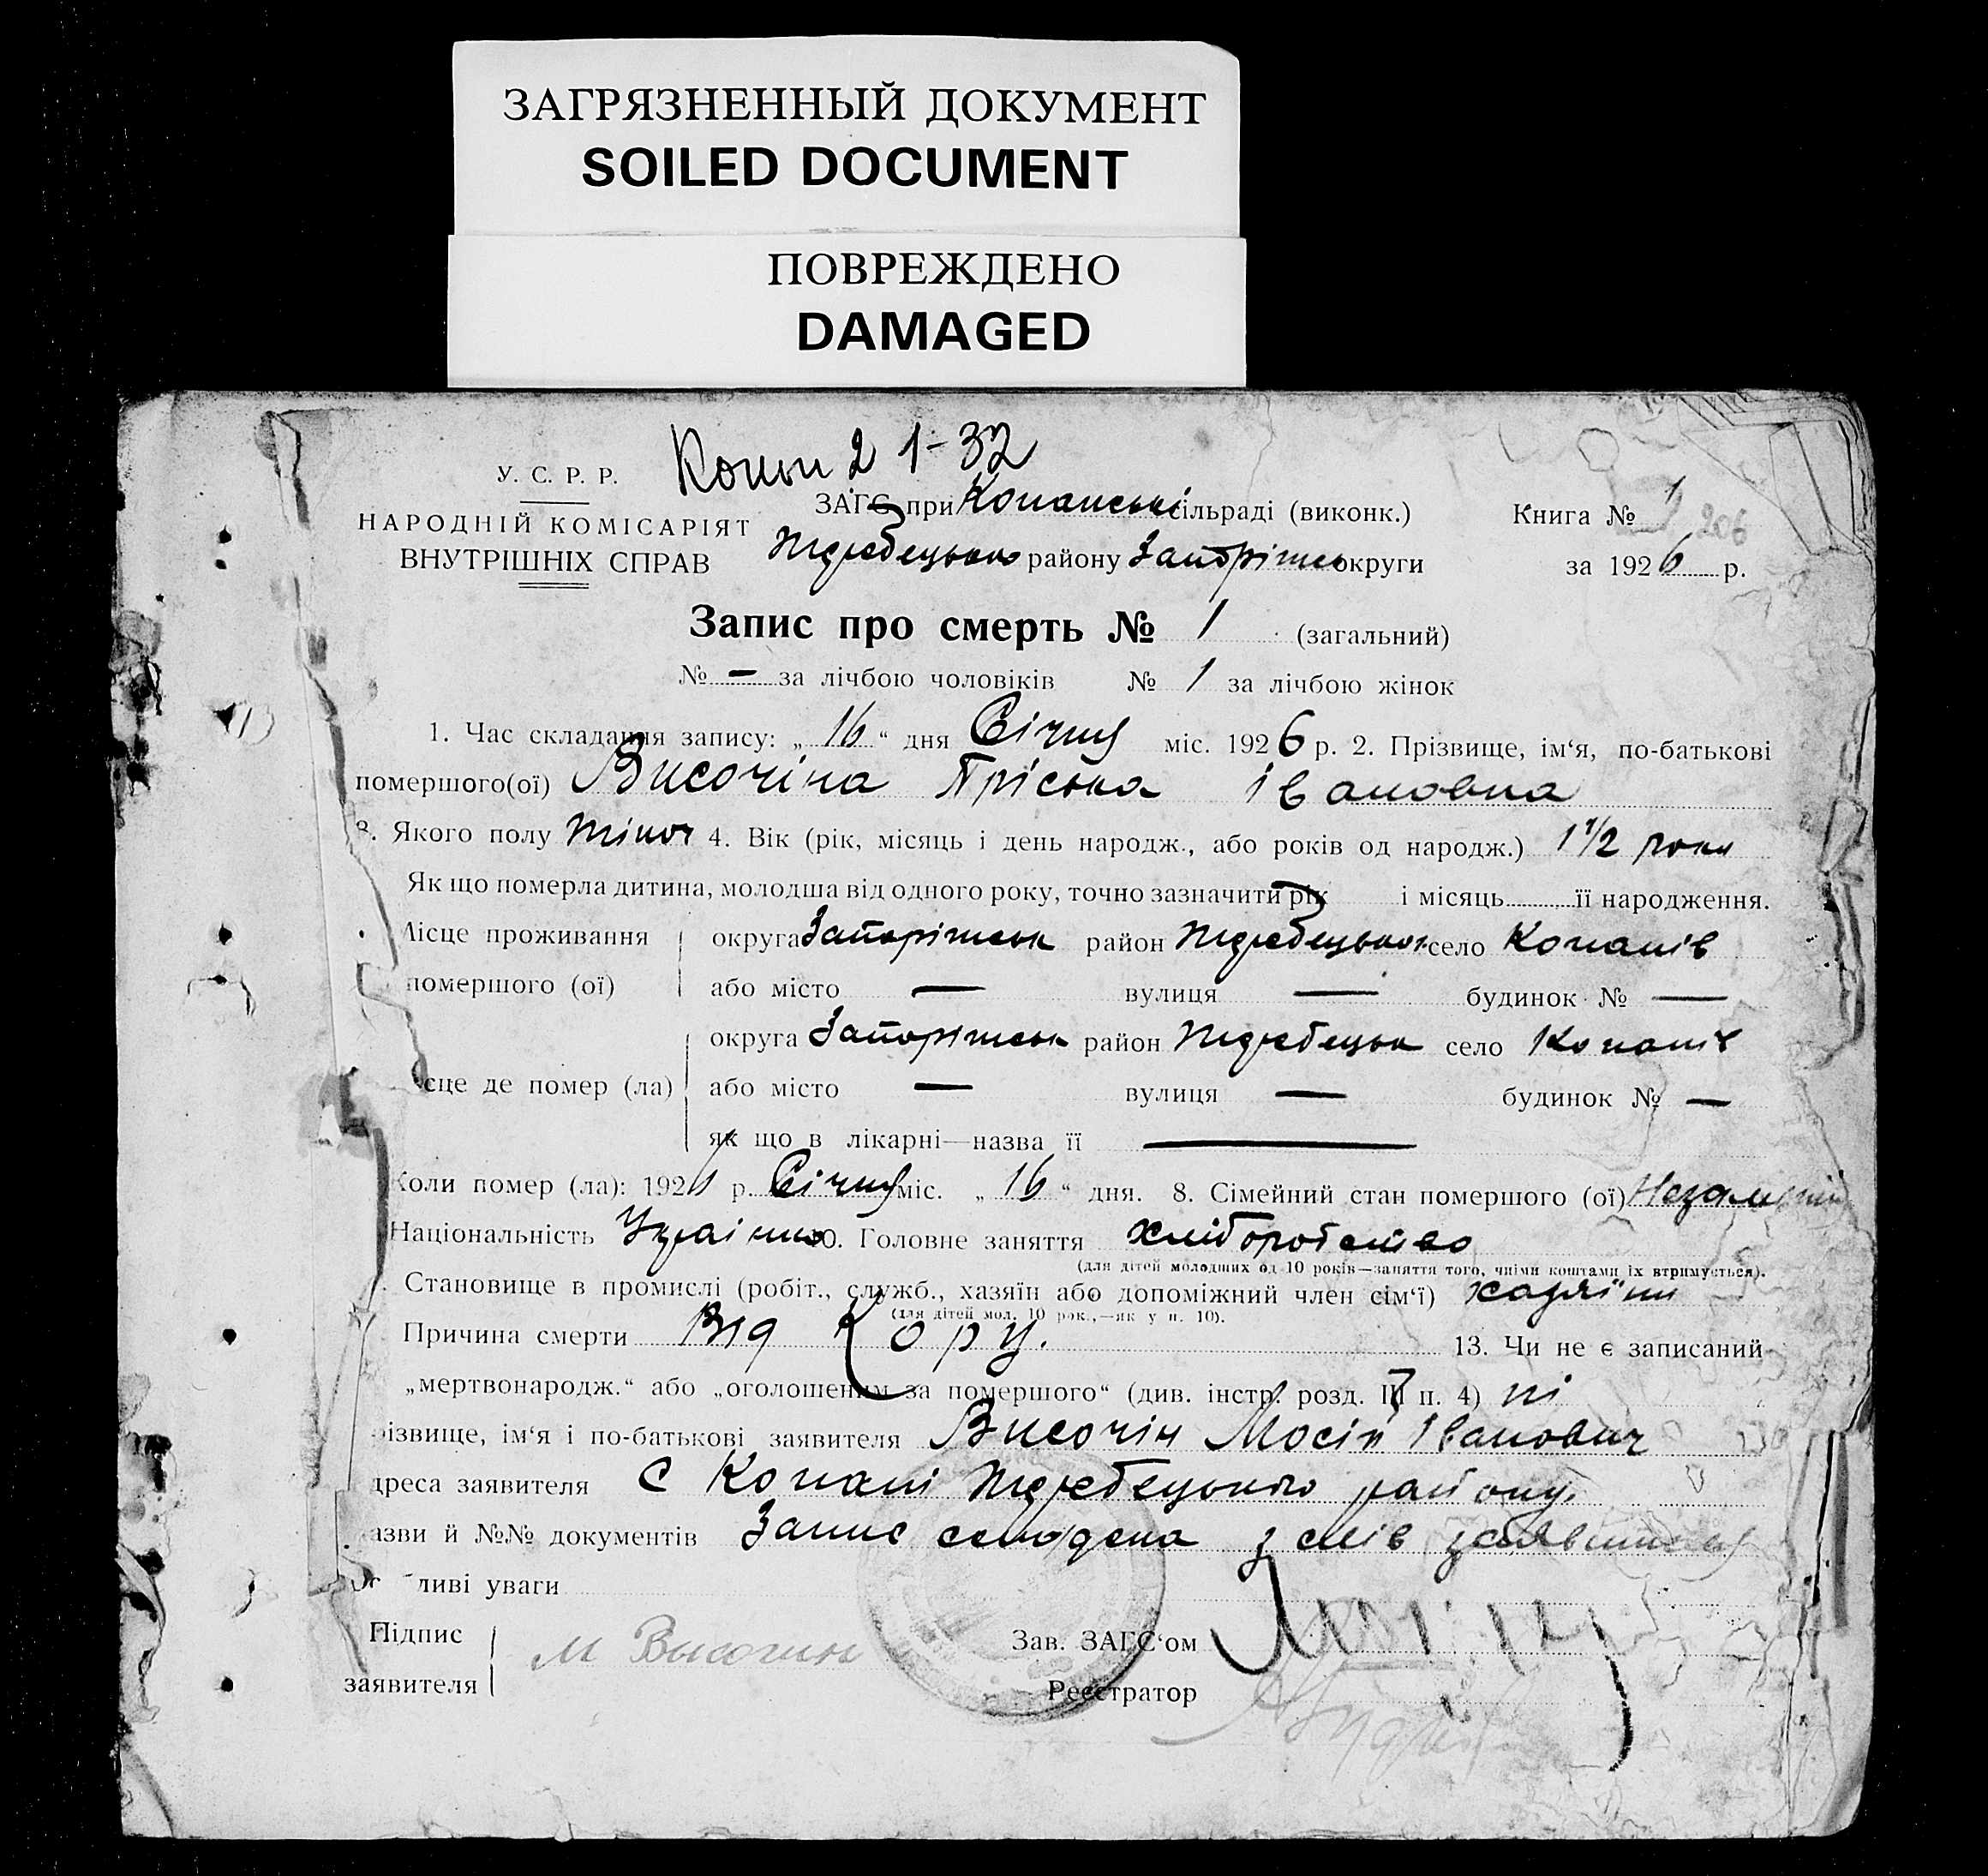 ЗАГРЯЗНЕННЫЙ ДОКУМЕНТ
SOILED DOCUMENT
ПОВРЕЖДЕНО
DAMAGED
Копии 2 1-32
У. С. Р. Р.
НАРОДНІЙ КОМІСАРІЯТ
ВНУТРІШНІХ СПРАВ
ЗАГС при Копанські сільраді (виконк.)
району Запоріжсь округи
Книга № 1 206
за 1926 р.
Запис про смерть № 1 (загальний)
№ — за лічбою чоловіків № 1 за лічбою жінок
1. Час складання запису: „16“ дня Січня міс. 1926 р. 2. Прізвище, ім‘я, по-батькові
помершого(ої) Височіна Пріська Івановна
3. Якого полу жіноч 4. Вік (рік, місяць і день народж., або років од народж.) 1 1/2 роки
Як що померла дитина, молодша від одного року, точно зазначити рік і місяць її народження.
Місце проживання
помершого (ої)
округа Запоріжськ район село Копанів
або місто — вулиця — будинок № —
сце де помер (ла)
округа Запоріжськ район село Копанів
або місто — вулиця — будинок № —
як що в лікарні—назва її —
Коли помер (ла): 1926 р. Січня міс. „16“ дня. 8. Сімейний стан помершого (ої)
Національність Українка 10. Головне заняття хліборобство
(для дітей молодших од 10 років—заняття того, чиїми коштами їх втримується).
Становище в промислі (робіт., служб., хазяїн або допоміжний член сім‘ї) хазяїни
(для дітей мол. 10 рок.,—як у п. 10).
Причина смерти Від Кору. 13. Чи не є записаний
„мертвонародж.“ або „оголошеним за помершого“ (див. інстр. розд. п. 4) ні
різвище, ім‘я і по-батькові заявителя Височін Мосій Іванович
дреса заявителя с Копані району
азви й №№ документів Запис складена з слів заявителя
ливі уваги
Підпис
заявителя
М Височин
Зав. ЗАГС‘ом
Реєстратор